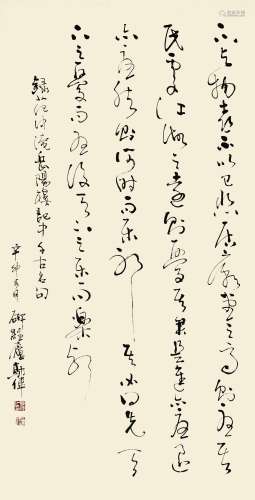 不以物喜不以己悲居廟堂之高則憂其
民處江湖之遠則憂其君是進亦憂退
亦憂然則何時而樂耶其必曰先天
下之憂而憂後天下之樂而樂歟
錄范仲淹岳陽樓記中千古名句